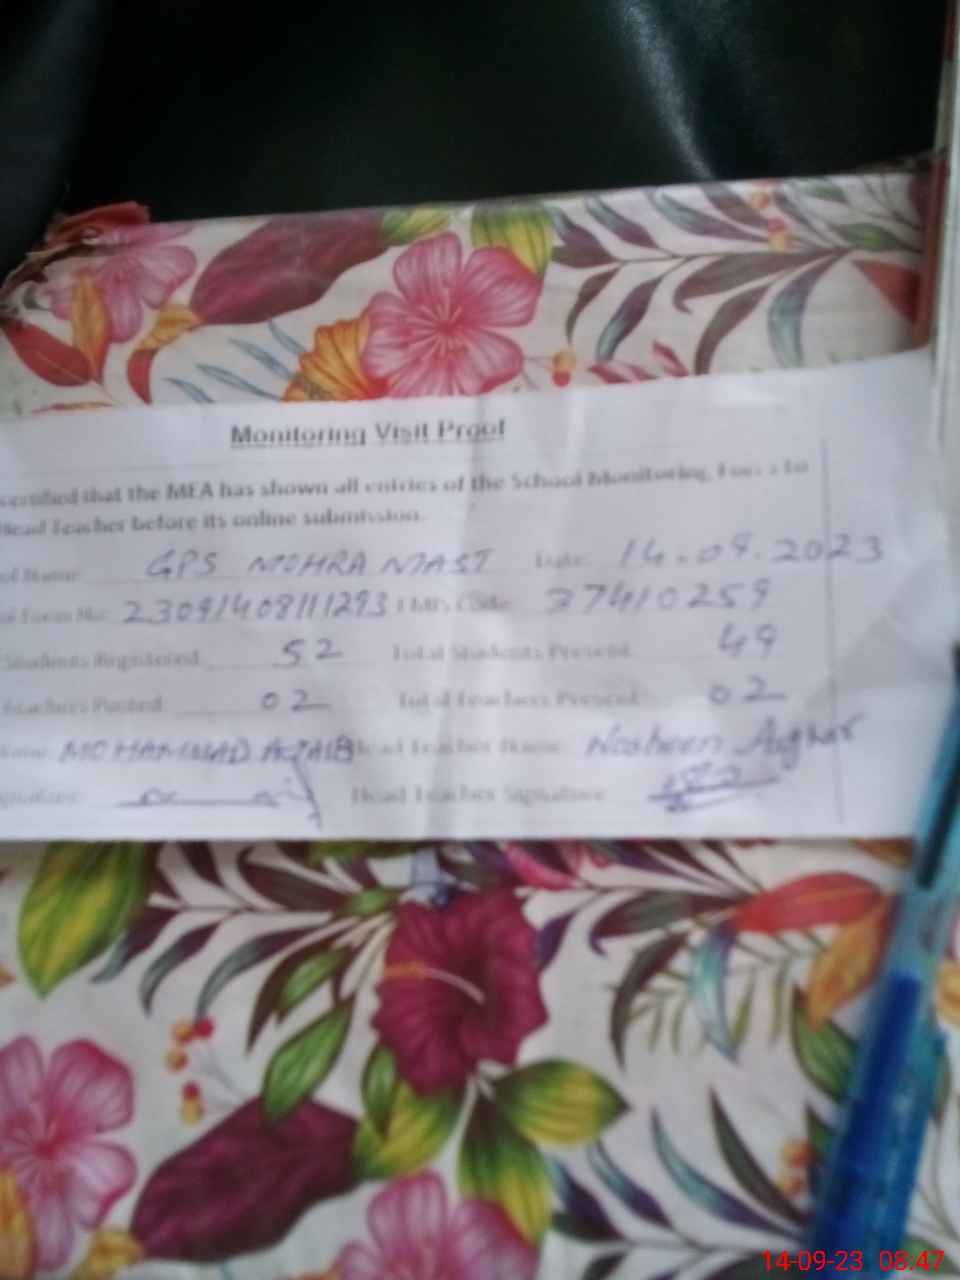 Monitoring Visit Proof
certified that the MEA has shown all entries of the School Monitoring Form to
Head Teacher before its online submission.
of Name GPS MOHRA MAST Date 14.09.2023
Form No: 23091408111293 EMIS Code 37410259
Students Registered 52 Total Students Present 49
Teachers Posted 02 Total Teachers Present 02
Name MOHAMMAD Head Teacher Name Nosheen Asghar
Signature Head Teacher Signature
14-09-23 08:47